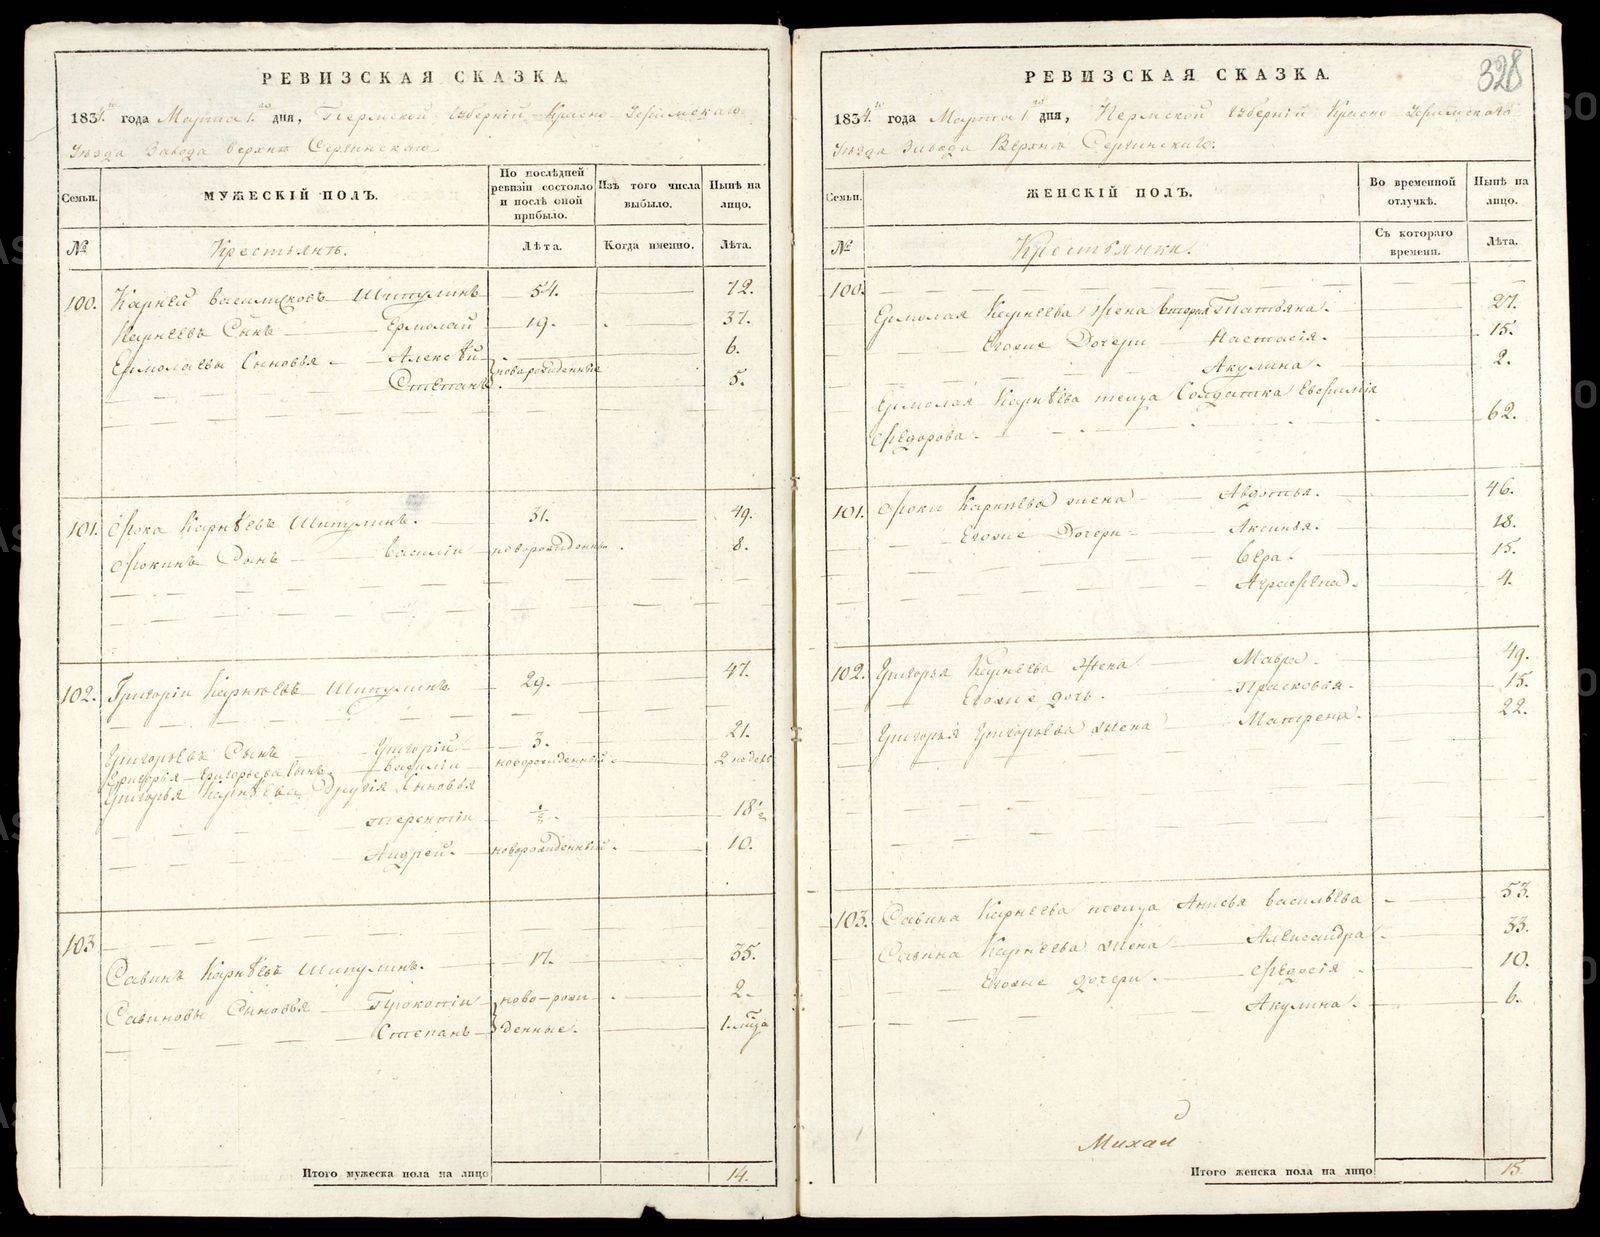 РЕВИЗСКАЯ СКАЗКА.
1834го года Марта 1го дня, Пермской Губерніи Красно Уфимскаго
Уѣзда Завода Верхне Сергинскаго
Семьи.
МУЖЕСКІЙ ПОЛЪ.
По послѣдней ревизіи состояло и послѣ оной прибыло.
Изъ того числа выбыло.
Нынѣ на лицо.
№
Крестьянъ.
Лѣта.
Когда именно.
Лѣта.
100. Карней Васильевъ Шипулинъ 54. 72.
Карнеевъ Сынъ Ермолай 19. 37.
Ермолаевы Сыновья Алексѣй 6.
Степанъ новорожденные 5.
101. Фока Карнѣевъ Шипулинъ. 31. 49.
Фокинъ Сынъ Василіи новорожденны 8.
102. Григоріи Карнѣевъ Шипулинъ 29. 47.
Григорьевъ Сынъ Григорій 3. 21.
Григорья Григорьева Сынъ Василіи новорожденный 2 недель
Григорья Карнѣева Другія Сыновья
Терентіи ½. 18½
Андрей. новорожденный. 10.
103
Савинъ Карнѣевъ Шипулинъ. 17. 35.
Савиновы Сыновья Прокопіи ново-рож 2.
Степанъ денные. 1. мца
Итого мужеска пола на лицо 14.
328
РЕВИЗСКАЯ СКАЗКА.
1834го года Марта 1го дня, Пермской Губерніи Красно Уфимскаго
Уѣзда Завода Верхне Сергинскаго.
Семьи.
ЖЕНСКІЙ ПОЛЪ.
Во временной отлучкѣ.
Нынѣ на лицо.
№
Крестьянки.
Съ котораго времени.
Лѣта.
100.
Ермолая Карнеева жена вторая Татьяна. 27.
Егоже Дочери Настасія. 15.
Акулина. 2.
Ермолая Карнѣева теща Солдатка Евфимія
Федорова. 62.
101. Фоки Карнеева жена Авдотья. 46.
Егоже Дочери Аксинья. 18.
Вера. 15.
Аграфена. 4.
102. Григорья Карнеева Жена Мавра. 49.
Егоже дочь. Прасковья. 15.
Григорья Григорьева жена Матрена. 22.
103. Савина Карнеева теща Анисья Васильева 53.
Савина Карнеева жена Александра 33.
Егоже дочери. Федосія 10.
Акулина. 6.
Михай
Итого женска пола на лицо 15.